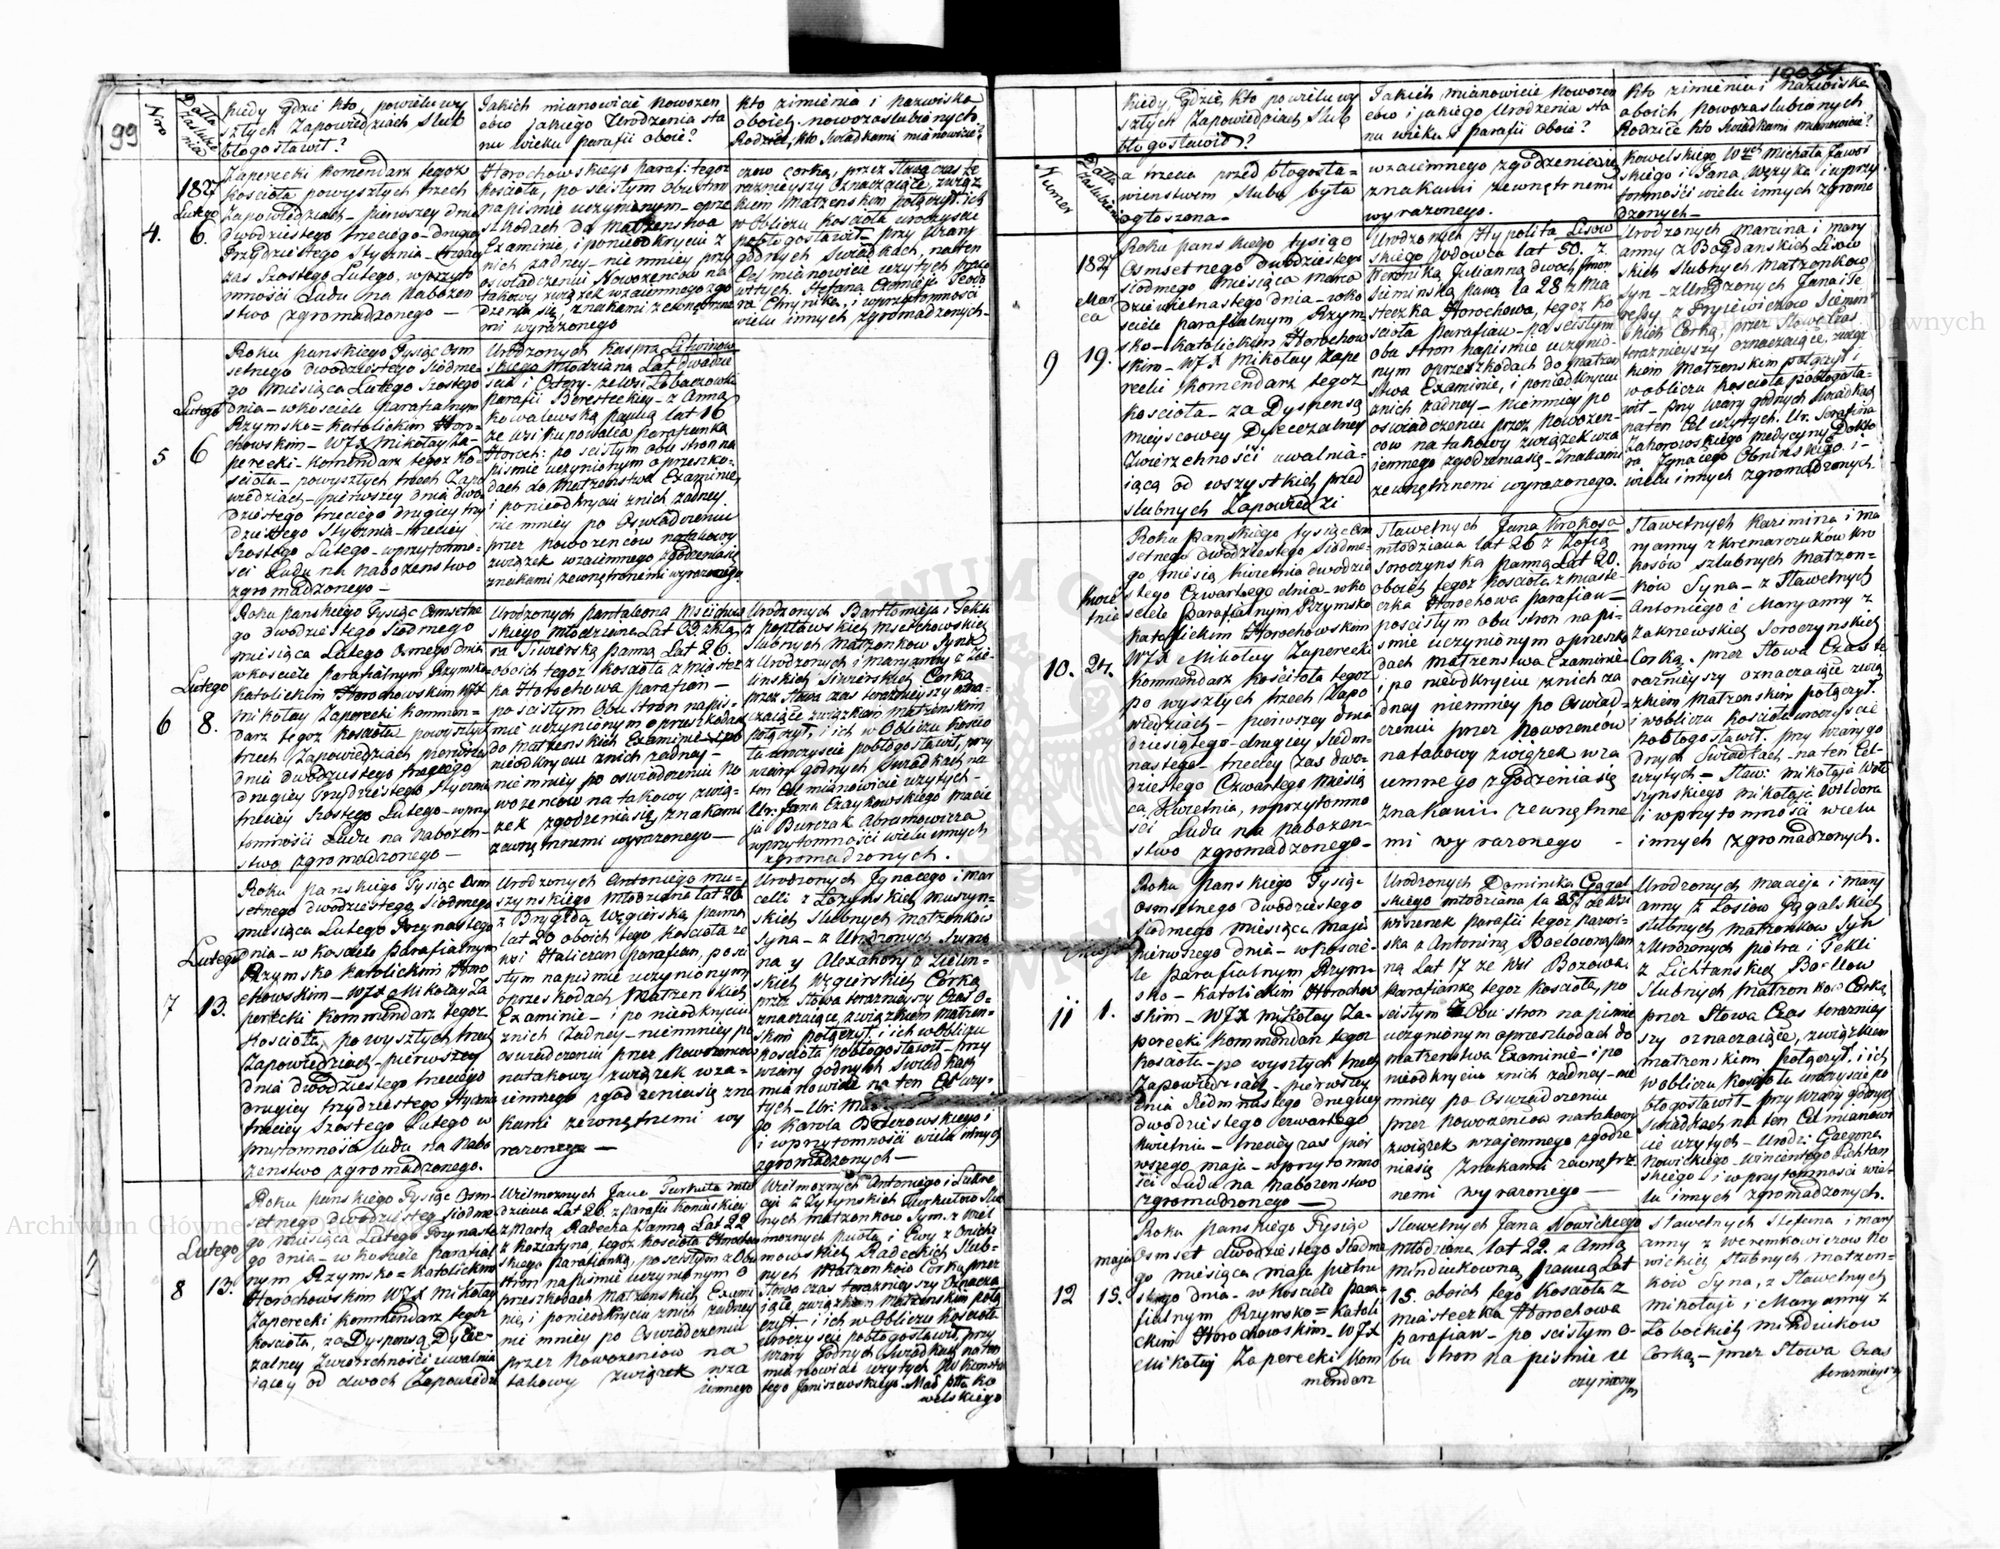 99
Nro
Datta zaślubienia
kiedy gdzie kto, powielu wy
szłych Zapowiedziach Slub
błogosławił?
Jakich mianowicie Nowożen
ców jakiego Urodzenia sta
nu wieku parafii oboie?
kto zimienia i nazwiska
oboich nowozaslubionych
Rodzice, kto Swiadkami mianowicie?
1827
Lutego
4. 6.
Zaperecki Komendarz tegoż
Kościoła powyszłych trzech
Zapowiedziach – pierwszey dnia
dwódziestego trzeciego – drugiey
Trzydziestego Stycznia – trzeciey
zas Szostego Lutego, wprzyto
mności Ludu na Nabożeń
stwo zgromadzonego –
Horochowskiego parafi: tegoż
kościoła, po scisłym obu stron
napismie uczynionym – oprze
szkodach do Matżenstwa
Examinie, i ponieodkryciu z
nich żadney – nie mniey przy
oswiadczeniu Nowożeńców na
takowy związek wzaiemnego zgo
dzenia się, znakami zewnętrzne
mi wyrażonego
czow Corką, przez Słowa czas te
razmieyszy Oznaczaiące, związ
kiem Matżenskim połączył. ich
w Obliczu Kościoła uroczyscie
pobłogosławił przy Wiary
godnych Swiadkach, na ten
Cel mianowicie użytych
Stefana
i wprzytomności
wielu innych zgromadzonych –
Lutego
5 6
Roku panskiego Tysiąc Osm
setnego dwódziestego Siódme
go Miesiąca Lutego Szostego
dnia – wkościele parafialnym
Rzymsko=Katolickim Horo-
chowskim – WJX Mikołay Za-
perecki – Komendarz tegoż Ko-
ścioła – powyszłych trzech Zapo
wiedziach – pierwszey dnia dwu
dziestego trzeciego drugiey trzy
dziestego Stycznia – trzeciey
Szostego Lutego – wprzytomno-
ści Ludu na nabożenstwo
zgromadzonego –
Urodzonych Kaspra Litwinow
skiego Młodziana Lat dwadzie
scia i Cztery – ze wsi Łobaczowki
parafii Beresteckiey – z Anną
Kowalewską panną lat 16
ze wsi kupowalca parafianką
Horoch: po scisłym obu stron na
pismie uczynionym o przeszko-
dach do Matżenstwa Examinie,
i ponieodkryciu znich żadney
nie mniey po Oswiadczeniu
przez Nowożeńców natakowy
związek wzaiemnego zgodzenia się
znakami zewnętrznemi wyrażonego
Lutego
6 8.
Roku panskiego Tysiąc Osmsetne
go dwódziestego Siodmego
miesiąca Lutego Osmego dnia
wkościele parafialnym Rzymsko
katolickim Horochowskim WJX
Mikołay Zaperecki Kommen-
darz tegoż Kościoła powyszłych
trzech Zapowiedziach pierwszey
dnia dwódziestego trzeciego
drugiey Trzydziestego Stycznia
trzeciey Szostego Lutego – wprzy
tomności Ludu na Nabożen-
stwo zgromadzonego –
Urodzonych pantaleona
skiego młodziana Lat 23. z Kla
rą Siwierską panną Lat 26.
oboich tegoż koscioła z miastecz
ka Horochowa parafian –
po scisłym Obu Stron napis-
mie uczynionym o przeszkodach
do Matżenskich Examinie – i po
nieodkryciu znich żadney –
nie mniey po oswiadczeniu No
wożencow na takowy zwią-
zek zgodzenia się, znakami
zewnętrznemi wyrażonego –
Urodzonych Bartłomieja i Tekli
z popławskich
Slubnych Matżonkow Synka
z Urodzonych i maryanny z Zie-
linskich Siwierskich Corką
przez Słowa czas teraznieyszy ozna-
czaiące związkiem Matżenskim
połączył, i ich w Obliczu Koscio
ła uroczyscie pobłogosławił, przy
wiary godnych Swiadkach na
ten Cel mianowicie użytych –
Ur. Jana Czaykowskiego Macie
ja Burczak Abramowicza
wprzytomności wielu innych
zgromadzonych.
Lutego
7 13.
Roku panskiego Tysiąc Osm
setnego dwódziestego Siodmego
miesiąca Lutego Trzynastego
dnia – w Kosciele parafialnym
Rzymsko Katolickim Horo
chowskim – WJX Mikołay Za
perecki Kommendarz tegoż
Kościoła, po wyszłych trzech
Zapowiedziach – pierwszey
dnia dwódziestego trzeciego
drugiey trzydziestego Stycznia
trzeciey Szostego Lutego w
przytomności ludu na Nabo
żenstwo zgromadzonego.
Urodzonych Antoniego Mu-
szynskiego Młodziana lat 26
z Brygidą Wzgierską panną
lat 20 oboich tego Kościoła ze
wsi Haliczan parafian, po sci
słym napismie uczynionym
oprzeszkodach Matżenskich
Examinie – i po nieodkryciu
znich żadney – niemniey po
oswiadczeniu przez Nowożencow
natakowy związek wza-
iemnego zgodzenia się zna
kami zewnętrznemi wy
rażonego –
Urodzonych Jgnacego i mar
celli z Łozynskich Muszyn-
skich Slubnych Matżonkow
Syna – z Urodzonych Szymo
na y z Zielin-
skich Wzgierskich Corką
przez Słowa teraznieyszy Czas o-
znaczaiące, związkiem Matżen-
skim połączył i ich w Obliczu
kościoła pobłogosławił – przy
wiary godnych Swiadkach
mianowicie na ten Cel uży-
tych – Ur:
go Karola Brzozowskiego i
i wprzytomności wielu innych
zgromadzonych –
Lutego
8 13.
Roku panskiego Tysiąc Osm-
setnego dwódziesteg Siodme
go Miesiąca Lutego Trzynaste
go dnia – w Kościele parafial
nym Rzymsko=katolickim
Horochowskim WJX Mikołay
Zaperecki Kommendarz tegoż
kościoła, za Dyspensą Dyece-
zalney Zwierzchności uwalnia
iącey od dwoch Zapowiedzi
Wielmożnych Jana Turkuła mło
dziana Lat 26. z parafii
z Martą Radecką Panną Lat 22
z Koziatyna, tegoż kościoła Horochow
skiego parafianką, po scisłym z Obu
stron napismie uczynionym o
przeszkodach Matżenskich Exami
nie, i ponieodkryciu znich żadney
nie mniey po Oswiadczeniu
przez Nowożencow na
takowy związek wza
iemnego
Wielmożnych Antoniego i Sukce
cyi z Żytynskich Turkułow Slub
nych Matżonkow Syna, z Wiel
możnych pawła i Ewy z
mowskich Radeckich Slub-
nych Matżonkow Corką, przez
Słowa czas teraznieyszy Oznacza
iące, związkiem Matżenskim połą
czył – i ich w Obliczu Kościoła
uroczyscie pobłogosławił, przy
wiary godnych Swiadkach na ten
mianowicie użytych
tego Janiszewskiego
welskiego
kiedy, gdzie, kto powielu wy
szłych Zapowiedziach Slub
błogosławił?
Jakich mianowicie Nowożeń
ców i jakiego Urodzenia sta
nu wieku i parafii oboie?
kto zimienia i Nazwiska
oboich nowozaslubionych
Rodzice kto Swiadkami mianowicie?
Numer
Datta zaslubienia
a trzecia przed błogosła=
wienstwem Slubu była
ogłoszona –
wzaiemnego zgodzenia się
znakami zewnętrznemi
wyrażonego.
Kowelskiego Wych Michała Jawor
skiego i Jana Wyzyka i wprzy
tomności wielu innych zgroma
dzonych –
1827
Marca
9 19.
Roku pans kiego tysiąc
Osmsetnego dwudziestego
siodmego miesiąca Marca
dziewietnastego dnia – wko
ściele parafialnym Rzym
sko – katolickim Horochow
skim – WJX Mikołay Zape
recki Komendarz tegoż
kościoła – za Dyspensą
mieyscowey Dyecezalney
Zwierzchności uwalnia-
iącą od wszystkich przed
slubnych Zapowiedzi
Urodzonych Hypolita Lisow
skiego wdowca lat 50. z
Weroniką Julianną dwoch Jmion
Sieminską panną la 28 z Mia
steczka Horochowa, tegoż ko
ścioła parafian – po scisłym
obu stron napismie uczynio-
nym oprzeszkodach do Matżen
stwa Examinie, i ponieodkryciu
znich żadney – niemniey po
oswiadczeniu przez Nowożen-
cow na takowy związek wza
iemnego zgodzenia się – Znakami
zewnętrznemi wyrażonego.
Urodzonych Marcina i mary
anny z Bogdanskich Lisow
skich slubnych Matżonkow
Syn – z Urodzonych Jana i Te
ressy z Siemin-
skich Corką, przez Słowa Czas
teraznieyszy oznaczaiące, związ
kiem Matżenskim połączył i
w obliczu kościoła pobłogosła-
wił – przy wiary godnych swiadkach
na ten Cel użytych. Ur. Serafina
Zahorowskiego medycyny Dokto
ra Jgnacego Obninskiego i –
wielu innych zgromadzonych.
Kwietnia
10. 24.
Roku panskiego tysiąc osm
setnego dwódziestego Siodme-
go, miesią Kwietnia dwódzie
stego Czwartego dnia – wko
sciele Parafialnym Rzymsko
Katolickim Horochowskim
WJX Mikołay Zaperecki
Kommendarz kościoła tegoż
po wyszłych trzech Zapo
wiedziach – pierwszey dnia
dziesiątego – drugiey siedm-
nastego – trzeciey zas dwo-
dziestego Czwartego Miesią
ca, Kwietnia, wprzytomno
ści Ludu na nabożen-
stwo zgromadzonego –
Sławetnych Jana Krokosa
młodziana lat 26 z Zofią
Soroczynską panną Lat 20.
oboich tegoż kościoła z miaste-
czka Horochowa parafian –
poscisłym obu stron na pi-
smie uczynionym oprzeszko
dach Matżenstwa Examinie
i po nieodkryciu znich ża
dney niemniey po Oswiad-
czeniu przez Nowożencow
natakowy związek wza
iemnego zgodzenia się
znakami zewnętrzne
mi wyrażonego –
Sławetnych Kazimirza i ma
ryanny z Kremarczukow Kro
kosów szlubnych Matżon-
ków Syna – z Sławetnych
Antoniego i Maryanny z
Zakrzewskich Soroczynskich
Corką. przez Słowa Czas te
raznieyszy oznaczaiące zwią
zkiem Matżenskim połączył.
i wobliczu kościoła uroczyscie
pobłogosławił. przy wiary go
dnych Swiadkach – na ten Cel
użytych – Sław: Mikołaja Woło
szynskiego Mikołaja Wildora
i wprzytomności wielu
innych zgromadzonych.
Maja
11 1.
Roku panskiego Tysiąc
Osmsetnego dwodziestego
siodmego miesiąca maja
pierwszego dnia – wkoscie-
le parafialnym Rzym-
sko – katolickim Horochow
skim – WJX Mikołay Za-
perecki Kommendarz tegoż
kościoła – po wyszłych trzech
Zapowiedziach – pierwszey
dnia Siedmnastego drugiey
dwódziestego czwartego
Kwietnia – trzeciey zas pier
wszego maja – wprzytomno
ści Ludu na nabożenstwo
zgromadzonego –
Urodzonych Dominika Gągal
skiego młodziana la 25, ze wsi
parafii tegoż
z Antoniną pan
ną Lat 17 ze Wsi
Parafianką tegoż kościoła, po
scisłym z Obu stron na pismie
uczynionym oprzeszkodach do
matżenstwa Examinie – i po
nieodkryciu znich żadney – nie
mniey po Oswiadczeniu
przez nowożencow natakowy
związek wzajemnego zgodze
nia się Znakami zewnętrz
nemi wyrażonego –
Urodzonych Macieja i mary
anny z Łosiow Gągalskich
slubnych matżonkow Syn
z Urodzonych piotra i Tekli
z
Slubnych Matżonkow Corką
przez Słowa Czas terazniey
szy oznaczaiące, związkiem
matżenskim połączył, i ich
w obliczu kościoła uroczyscie po
błogosławił – przy Wiary godnych
Swiadkach na ten Cel mianowi
cie użytych – Urodz:
Nowickiego – Wincentego Lichtan
skiego – i wprzytomności wie-
lu innych zgromadzonych.
maja
12 15.
Roku Panskiego Tysiąc
Osmset dwodziestego Siodme
go miesiąca maja piętna
stego dnia – w kościele para-
fialnym Rzymsko=katoli
ckim Horochowskim – WJX
Mikołaj Zaperecki Kom
mendarz
Sławetnych Jana Nowickiego
młodziana lat 22. z Anną
Mindiukowną panną Lat
15. oboich tego Kościoła z
miasteczka Horochowa
parafian – po scisłym o-
bu stron na pismie u
czynionym
Sławetnych Stefana i mary
anny z Weremkowiczow No
wickich slubnych matżon-
ków Syna, z Sławetnych
Mikołaja i Maryanny z
Łobockich Mindiukow
Corką – przez Słowa Czas
teraznieyszy